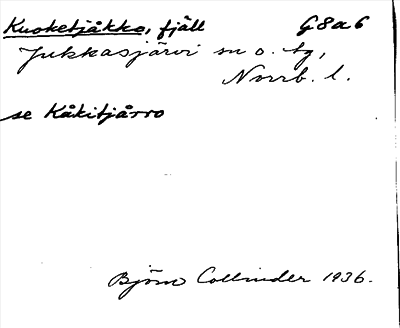 Kuoketjåkko, fjäll G8a6
Jukkasjärvi sn o. tg,
Norrb. l.
se Kåkitjårro
Björn Collinder 1936.